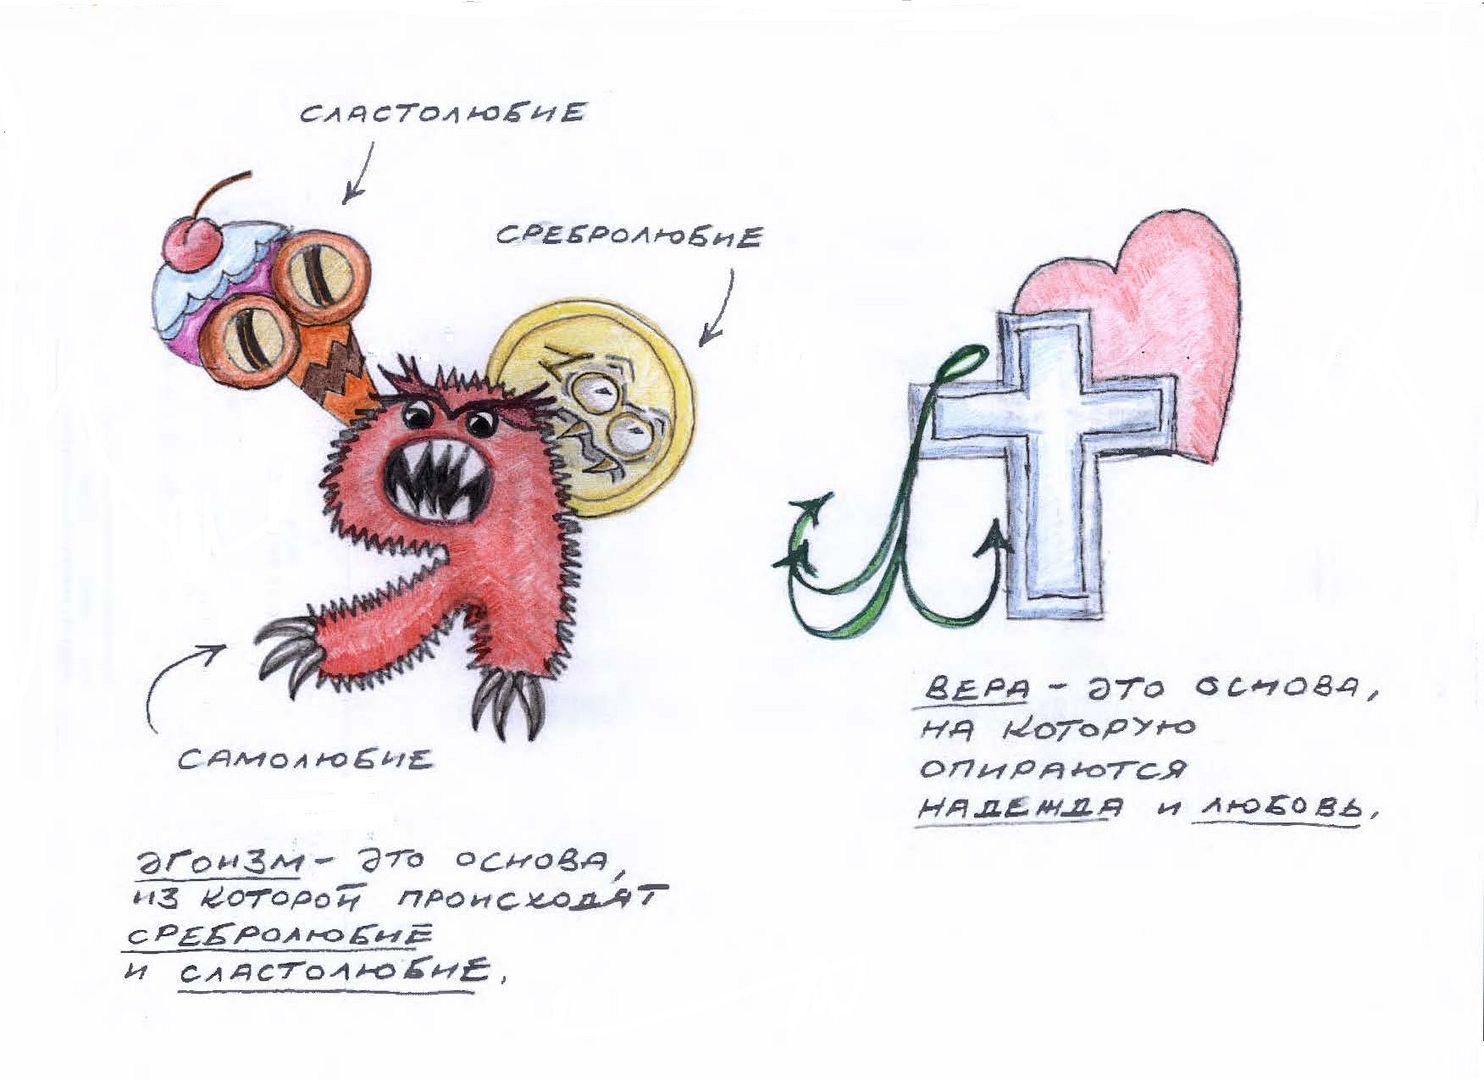 СЛАСТОЛЮБИЕ
СРЕБРОЛЮБИЕ
САМОЛЮБИЕ
ЭГОИЗМ - ЭТО ОСНОВА,
ИЗ КОТОРОЙ ПРОИСХОДЯТ
СРЕБРОЛЮБИЕ
И СЛАСТОЛЮБИЕ.
ВЕРА - ЭТО ОСНОВА,
НА КОТОРУЮ
ОПИРАЮТСЯ
НАДЕЖДА И ЛЮБОВЬ.